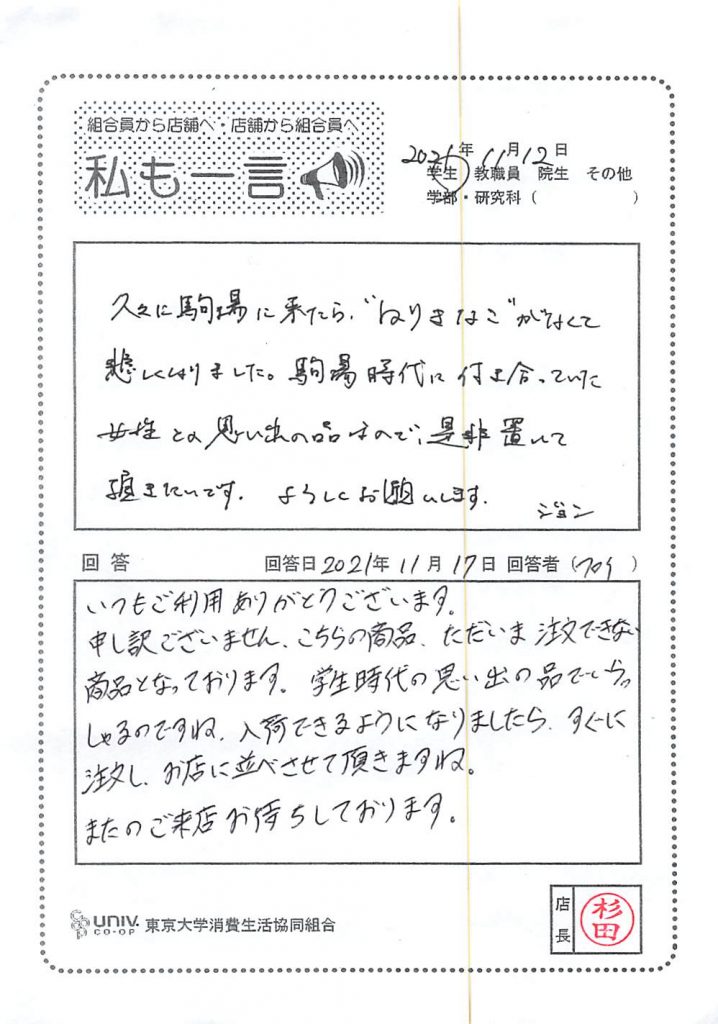 組合員から店舗へ・店舗から組合員へ
私も一言
2021年11月12日
学生 教職員 院生 その他
学部・研究科( )
久々に駒場に来たら、"ねりきなこ"がなくて
悲しくなりました。駒場時代に付き合っていた
女性との思い出の品なので、是非置いて
頂きたいです。よろしくお願いします。
ジョン
回答 回答日2021年11月17日 回答者( )
いつもご利用ありがとうございます。
申し訳ございません、こちらの商品、ただいま注文できない
商品となっております。学生時代の思い出の品でいらっ
しゃるのですね、入荷できるようになりましたら、すぐに
注文し、お店に並べさせて頂きますね。
またのご来店お待ちしております。
UNIV. CO-OP 東京大学消費生活協同組合
店長 杉田